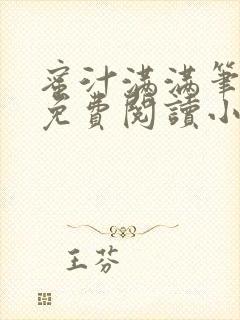 蜜汁滿滿筆
免費閱讀小
王芬